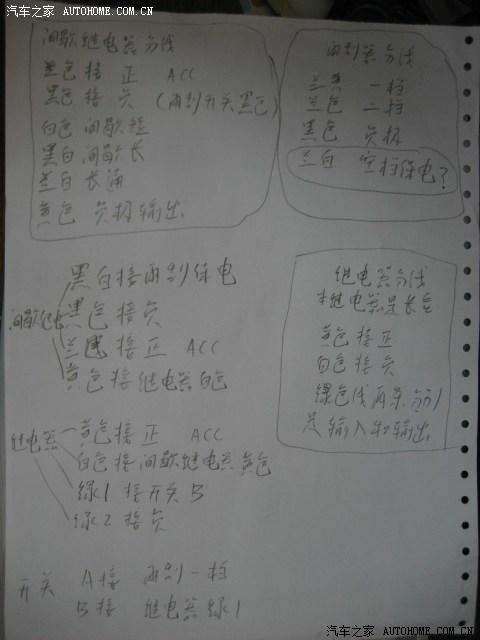 汽车之家 AUTOHOME.COM.CN
间歇继电器分线
兰色接 正 ACC
黑色 接 负 (雨刮开关黑色)
白色 间歇短
黑白 间歇长
兰白 长通
黄色 负极输出
雨刮器分线
兰黑 一档
兰色 二档
黑色 负极
兰白 空档保电?
间歇继电
黑白接雨刮保电
黑色 接负
兰色 接正 ACC
黄色接继电器白色
继电器分线
继电器是长包
黄色接正
白色接负
绿色线两条
是输入和输出
继电器
黄色接 正 ACC
白色接间歇继电器黄色
绿1 接开关B
绿2 接负
开关
A接 雨刮一档
B接 继电器绿1
汽车之家 AUTOHOME.COM.CN